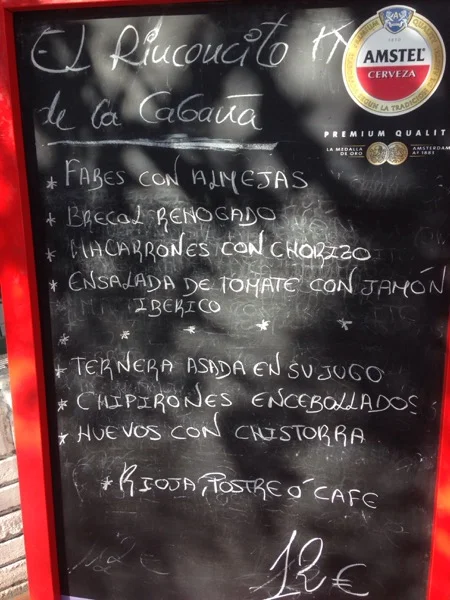 El Rinconcito
de la Cabaña
AMSTEL
CERVEZA
PREMIUM QUALIT
LA MEDALLA DE ORO
AMSTERDAM Aº 1883
* FABES CON ALMEJAS
* BRECOL REHOGADO
* MACARRONES CON CHORIZO
* ENSALADA DE TOMATE CON JAMÓN
IBERICO
* * * * *
* TERNERA ASADA EN SU JUGO
* CHIPIRONES ENCEBOLLADOS
* HUEVOS CON CHISTORRA
* RIOJA, POSTRE Ó CAFE
12 €
12 €